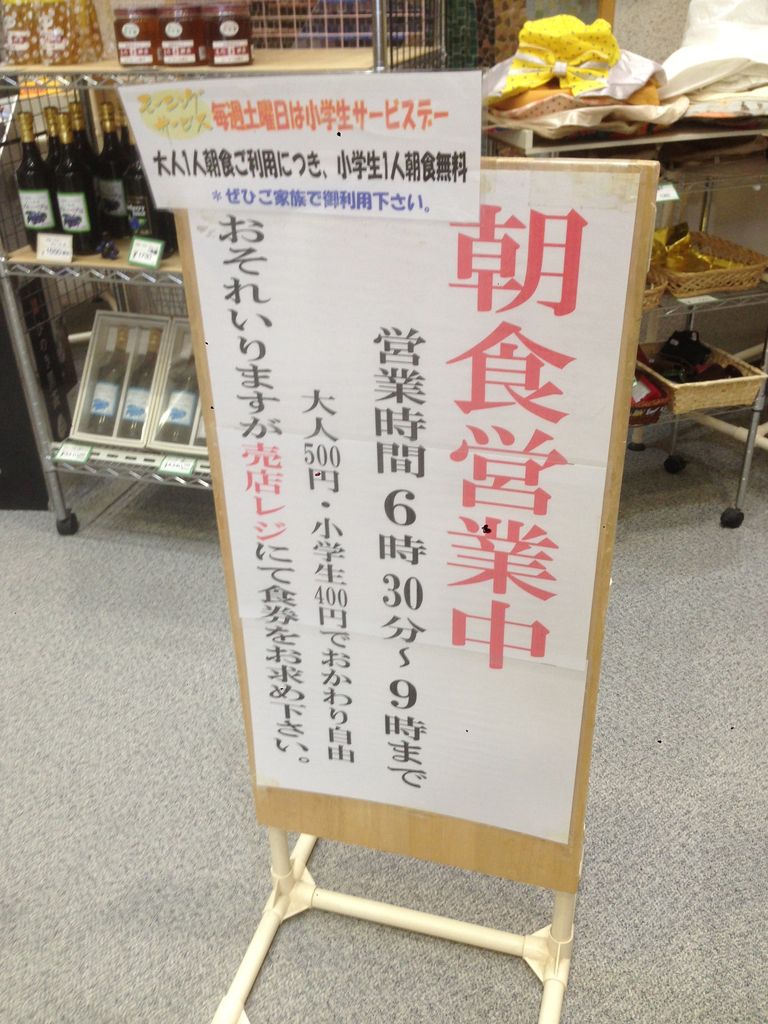 モーニングサービス
毎週土曜日は小学生サービスデー
大人1人朝食ご利用につき、小学生1人朝食無料
*ぜひご家族で御利用下さい。
朝食営業中
営業時間6時30分~9時まで
大人500円・小学生400円でおかわり自由
おそれいりますが売店レジにて食券をお求め下さい。